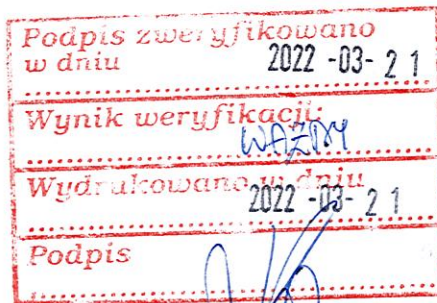 Podpis zweryfikowano
w dniu 2022 -03- 21
Wynik weryfikacji:
WAŻNY
Wydrukowano w dniu
2022 -03- 21
Podpis